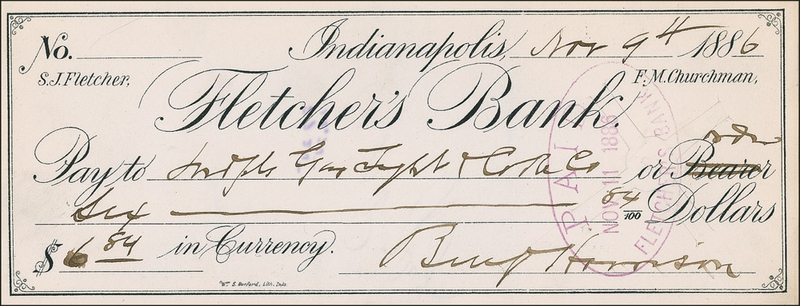 No. Indianapolis, Nov 9th 1886
S.J. Fletcher, F.M. Churchman,
Fletcher's Bank.
order
Pay to Indpls Gas Light & Coke Co or Bearer
Six 84/100 Dollars
$ 6 84 in Currency. Benj Harrison
Wm. S. Burford, Lith. Inds.
PAID
NOV 11 1886
FLETCHER'S BANK